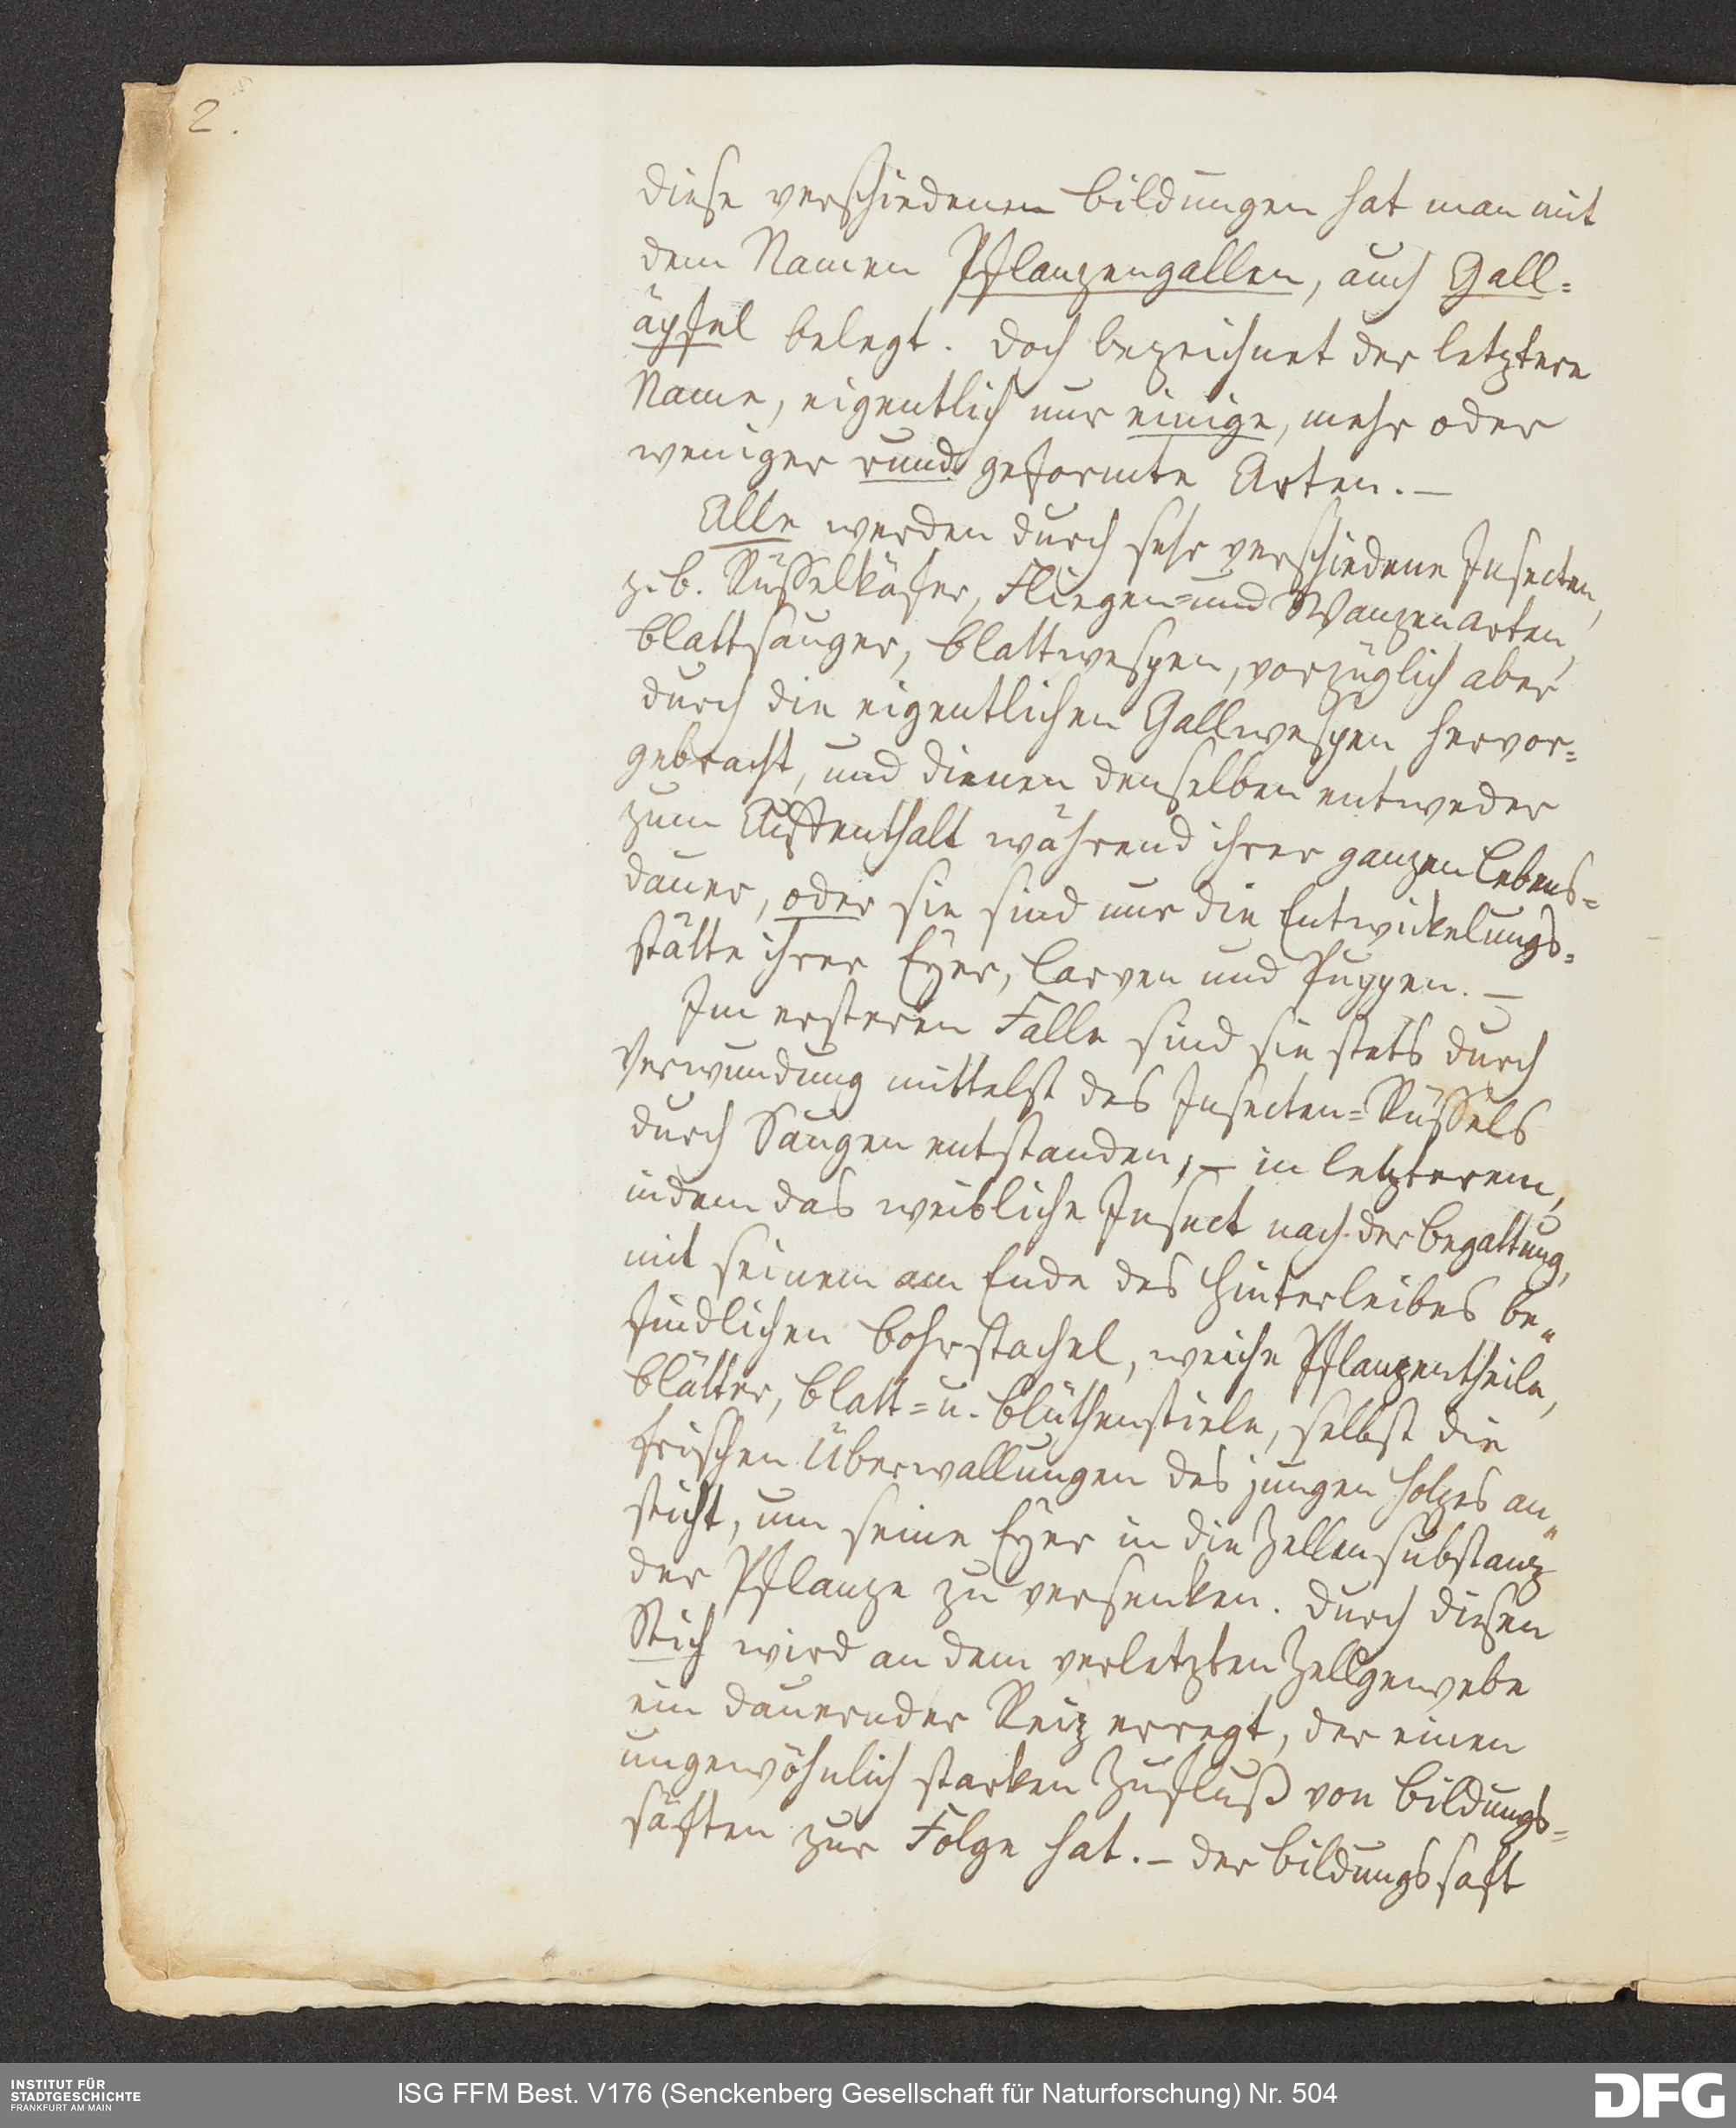 2.
diese verschiedenen Bildungen hat man mit
dem Namen Pflanzengallen, auch Gall=
äpfel belegt. Doch bezeichnet der letztere
Name, eigentlich nur einige, mehr oder
weniger rund geformte Arten. —
Alle werden durch sehr verschiedene Insecten,
z. b. Rüsselkäfer, Fliegen= und Wanzenarten,
Blattsauger, Blattwespen, vorzüglich aber
durch die eigentlichen Gallwespen hervor=
gebracht, und dienen denselben entweder
zum Auffenthalt während ihrer ganzen Lebens=
dauer, oder sie sind nur die Entwickelungs=
stätte ihrer Eyer, Larven und Puppen. —
Im ersteren Falle sind sie stets durch
Verwundung mittelst des Insecten=Rüssels
durch Saugen entstanden, — in letzterem,
indem das weibliche Insect nach der Begattung,
mit seinem am Ende des Hinterleibes be„
findlichen Bohrstachel, weiche Pflanzentheile,
Blätter, Blatt= u. Blüthenstiele, selbst die
frischen Überwallungen des jungen Holzes an„
sticht, um seine Eyer in die Zellensubstanz
der Pflanze zu versenken. Durch diesen
Stich wird an dem verletzten Zellgewebe
ein dauernder Reiz erregt, der einen
ungewöhnlich starken Zufluß von Bildungs=
säften zur Folge hat. — Der Bildungssaft
INSTITUT FÜR
STADTGESCHICHTE
FRANKFURT AM MAIN
ISG FFM Best. V176 (Senckenberg Gesellschaft für Naturforschung) Nr. 504
DFG